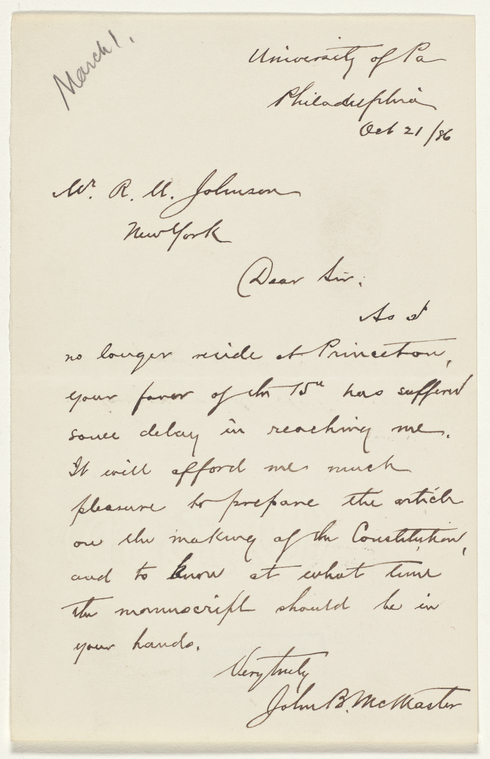 March 1.
University of Pa
Philadelphia
Oct 21/86
Mr. R. U. Johnson
New York
Dear Sir:
As I
no longer reside at Princeton,
your favor of the 15th has suffered
some delay in reaching me.
It will afford me much
pleasure to prepare the article
on the making of the Constitution,
and to know at what time
the manuscript should be in
your hands.
Very truly
John B. McMaster